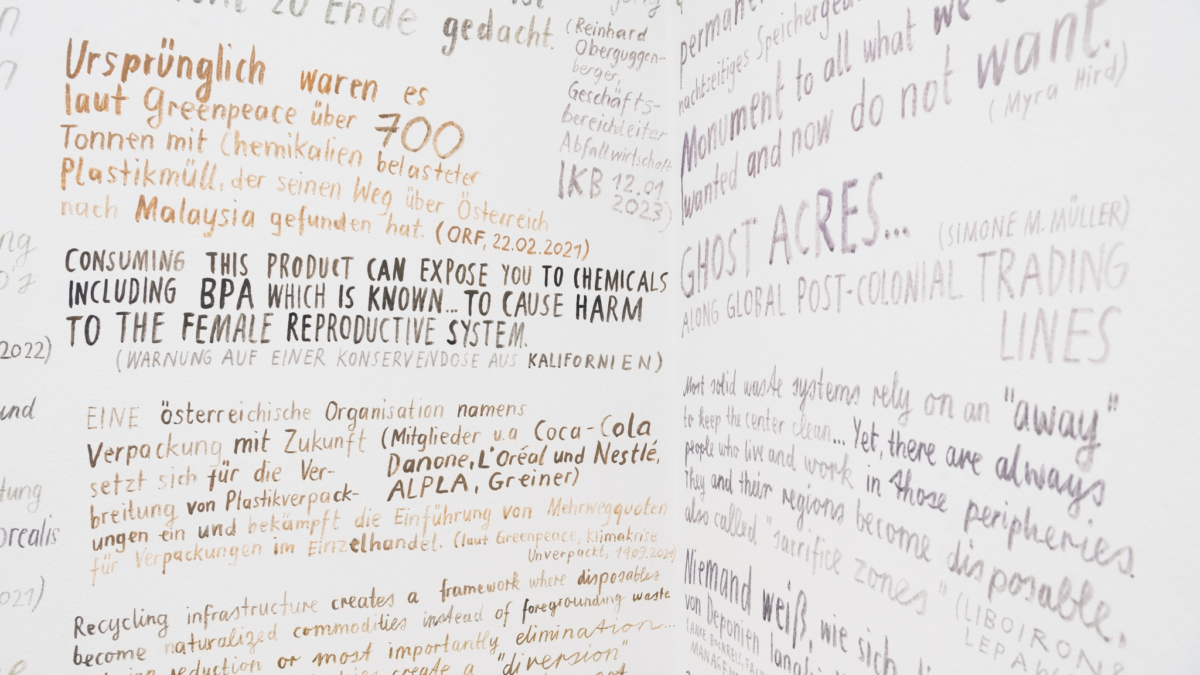 zu Ende gedacht.
(Reinhard
Oberguggen-
berger,
Geschäfts-
bereichleiter
Abfallwirtschaft
IKB 12.01
2023)
Ursprünglich waren es
laut Greenpeace über 700
Tonnen mit Chemikalien belasteter
Plastikmüll, der seinen Weg über Österreich
nach Malaysia gefunden hat. (ORF, 22.02.2021)
CONSUMING THIS PRODUCT CAN EXPOSE YOU TO CHEMICALS
INCLUDING BPA WHICH IS KNOWN... TO CAUSE HARM
TO THE FEMALE REPRODUCTIVE SYSTEM.
(WARNUNG AUF EINER KONSERVENDOSE AUS KALIFORNIEN)
2022)
und
EINE österreichische Organisation namens
Verpackung mit Zukunft (Mitglieder u.a Coca-Cola
Danone, L'Oréal und Nestlé,
ALPLA, Greiner)
setzt sich für die Ver-
breitung von Plastikverpack-
ungen ein und bekämpft die Einführung von Mehrwegquoten
für Verpackungen im Einzelhandel. (laut Greenpeace, klimakrise
Unverpackt, 19.09.2021)
Recycling infrastructure creates a framework where disposables
become naturalized commodities instead of foregrounding waste
reduction or most importantly elimination...
create a "diversion"
permanent
nachtseitiges
Monument to all what we
wanted and now do not want.
(Myra Hird)
GHOST ACRES...
(SIMONE M. MÜLLER)
ALONG GLOBAL POST-COLONIAL TRADING
LINES
Most solid waste systems rely on an "away"
to keep the center clean... Yet, there are always
people who live and work in those peripheries.
They and their regions become disposable,
also called "sacrifice zones" (LIBOIRON &
Niemand weiß, wie sich
von Deponien